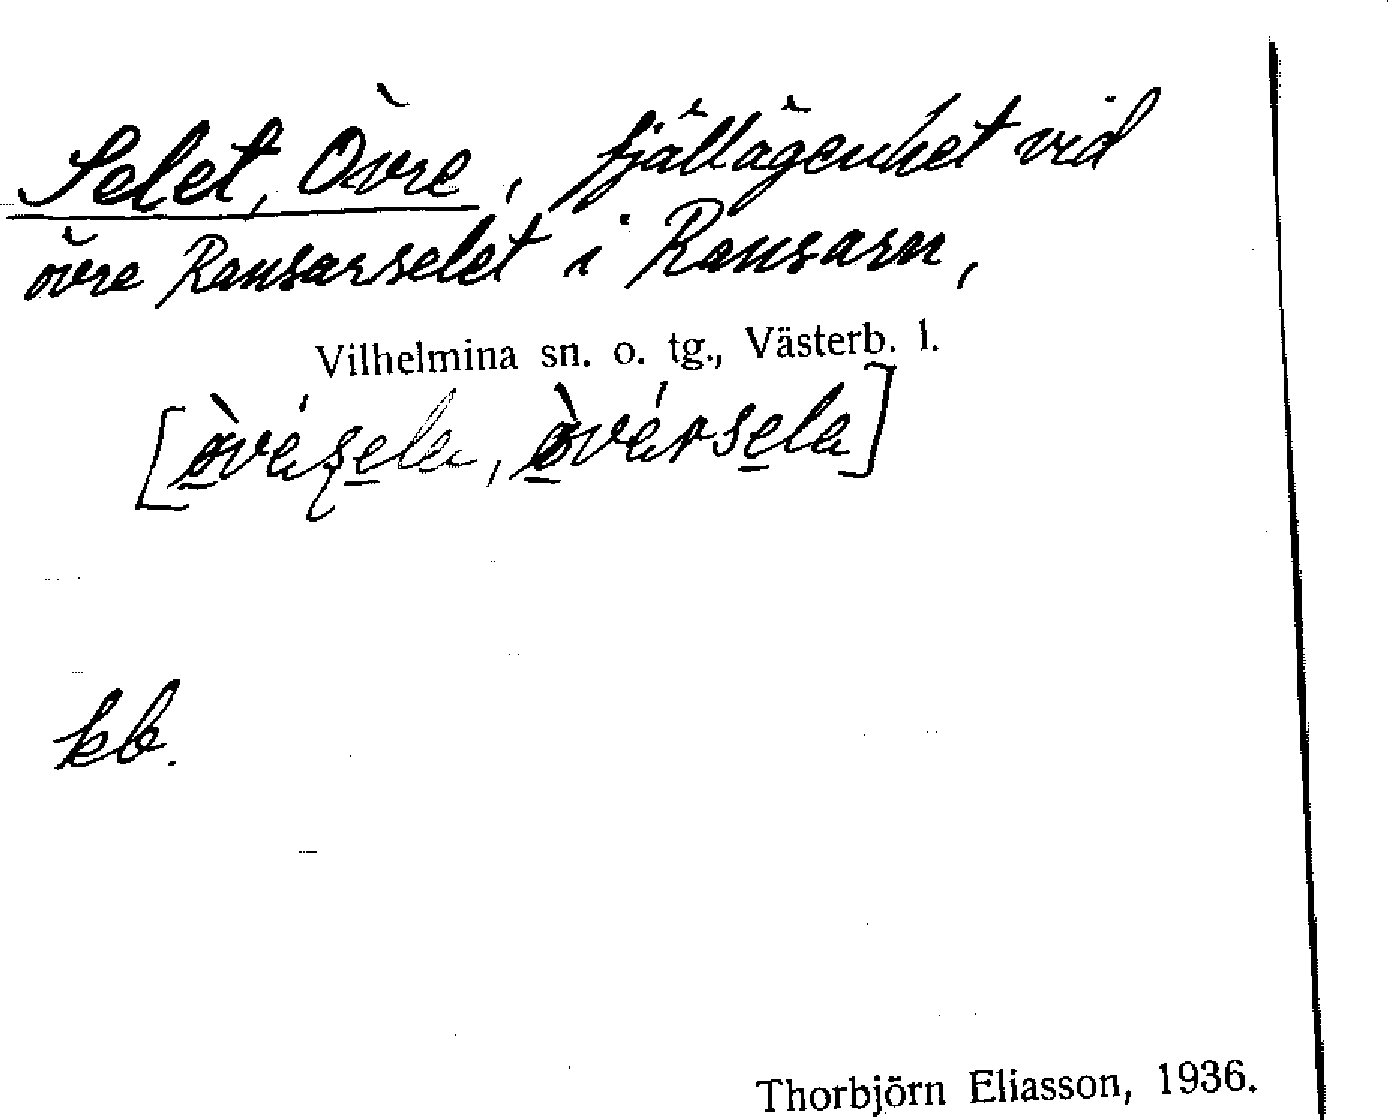 Selet, Övre, fjällägenhet vid
övre Ransarselet i Ransarn,
Vilhelmina sn. o. tg., Västerb. l.
kb.
Thorbjörn Eliasson, 1936.